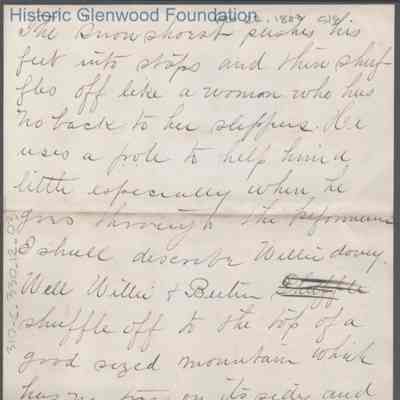 Historic Glenwood Foundation
The Snowshoest pushes his
feet into straps and then shuf-
fles off like a woman who has
no back to her slippers. He
uses a pole to help him a
little especially when he
goes through the performance
I shall describe Willie doing.
Well Willie &
shuffle off to the top of a
good sized mountain which
has no trees on its side and